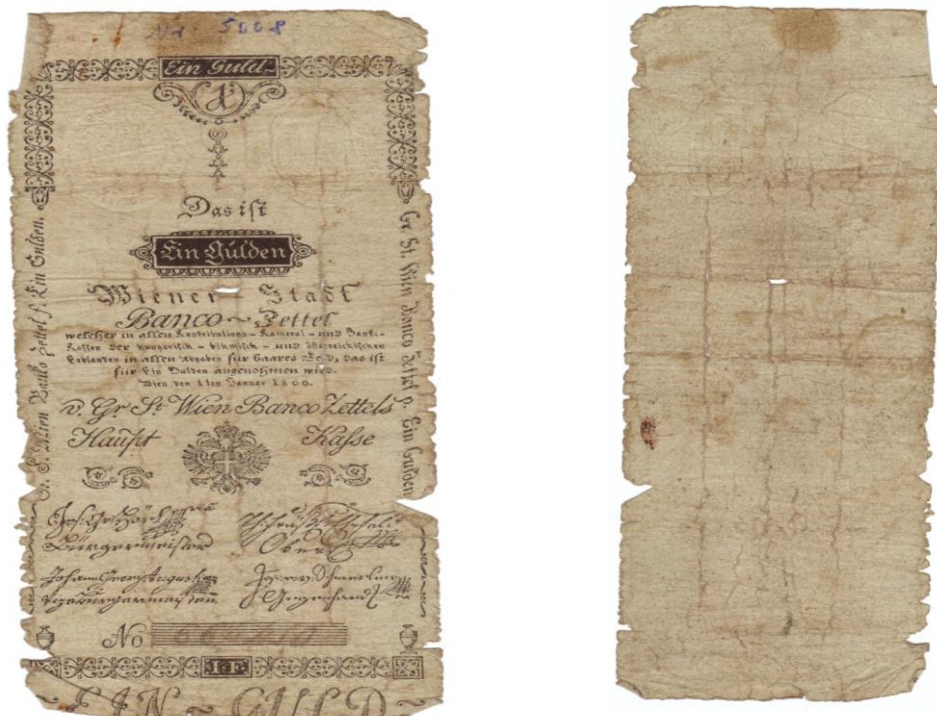 No. 5008
Ein Guld~
1
Das ist
Ein Gulden
Wiener = Stadt
Banco ~ Zettel
welcher in allen Kontributions = Kameral = und Bank =
Kassen der hungarisch = böhmisch = und österreichischen
Erblanden in allen Abgaben für baares Geld, das ist
für Ein Gulden angenohmen wird.
Wien den 1ten Januar 1800.
v. Gr. St. Wien Banco Zettels
Haupt Kasse
Bürgermeister
Johann Georg Augusti
No
1 F.
~ EIN ~ GULD ~
Gr. St. Wien Banco Zettel f. Ein Gulden.
Gr. St. Wien Banco Zettel f. Ein Gulden